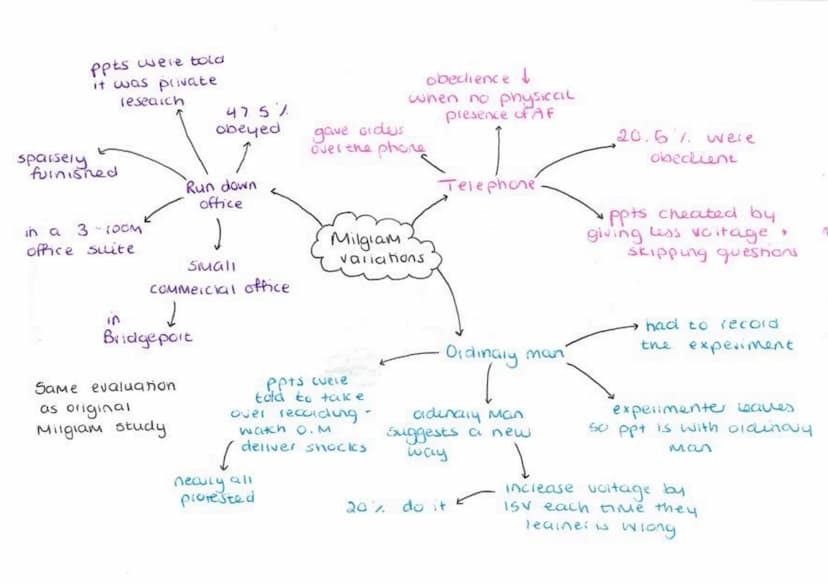 Milgram
variations
Run down
office
ppts were told
it was private
research
47.5%
obeyed
sparsely
furnished
in a 3-room
office suite
small
commercial office
in
Bridgeport
Telephone
gave orders
over the phone
obedience ↓
when no physical
presence of AF
20.5% were
obedient
ppts cheated by
giving less voltage +
skipping questions
Ordinary man
had to record
the experiment
experimenter leaves
so ppt is with ordinary
man
ordinary man
suggests a new
way
increase voltage by
15V each time they
learner is wrong
20% do it
ppts were
told to take
over recording -
watch O.M
deliver shocks
nearly all
protested
Same evaluation
as original
Milgram study